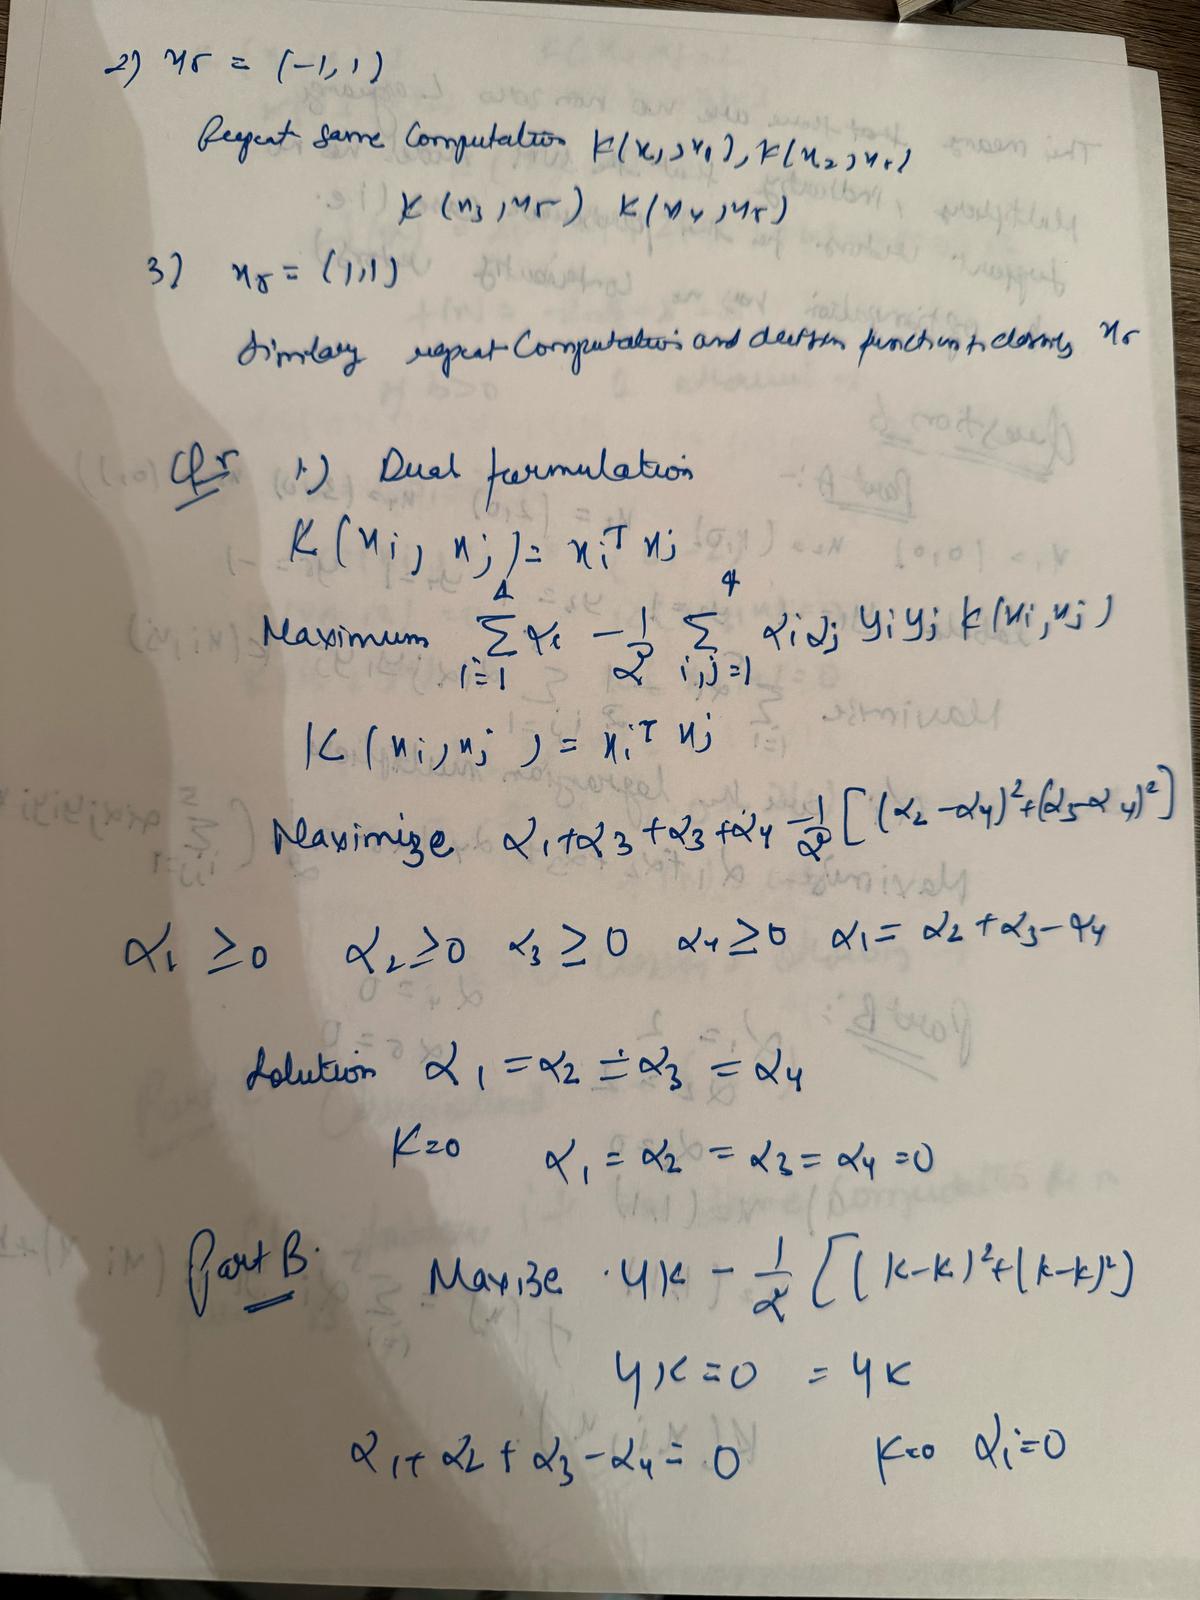 2) x5 = (-1, 1)
Repeat same Computation K(x1, x5), K(x2, x5)
K(x3, x5) K(x4, x5)
3) x5 = (1,1)
Similary repeat Computations and function x5
Q5 1.) Dual formulation
K(xi, xj) = xiᵀ xj
Maximum Σ_{i=1}^{4} αi - 1/2 Σ_{i,j=1}^{4} αi αj yi yj K(xi, xj)
K(xi, xj) = xiᵀ xj
Maximize α1 + α3 + α3 + α4 - 1/2 [(α2 - α4)² + (α3 - α4)²]
α1 ≥ 0 α2 ≥ 0 α3 ≥ 0 α4 ≥ 0 α1 = α2 + α3 - α4
Solution α1 = α2 = α3 = α4
K=0 α1 = α2 = α3 = α4 = 0
Part B. Maxize 4K - 1/2 [(K-K)² + (K-K)²)
4K = 0 = 4K
α1 + α2 + α3 - α4 = 0 K=0 αi = 0